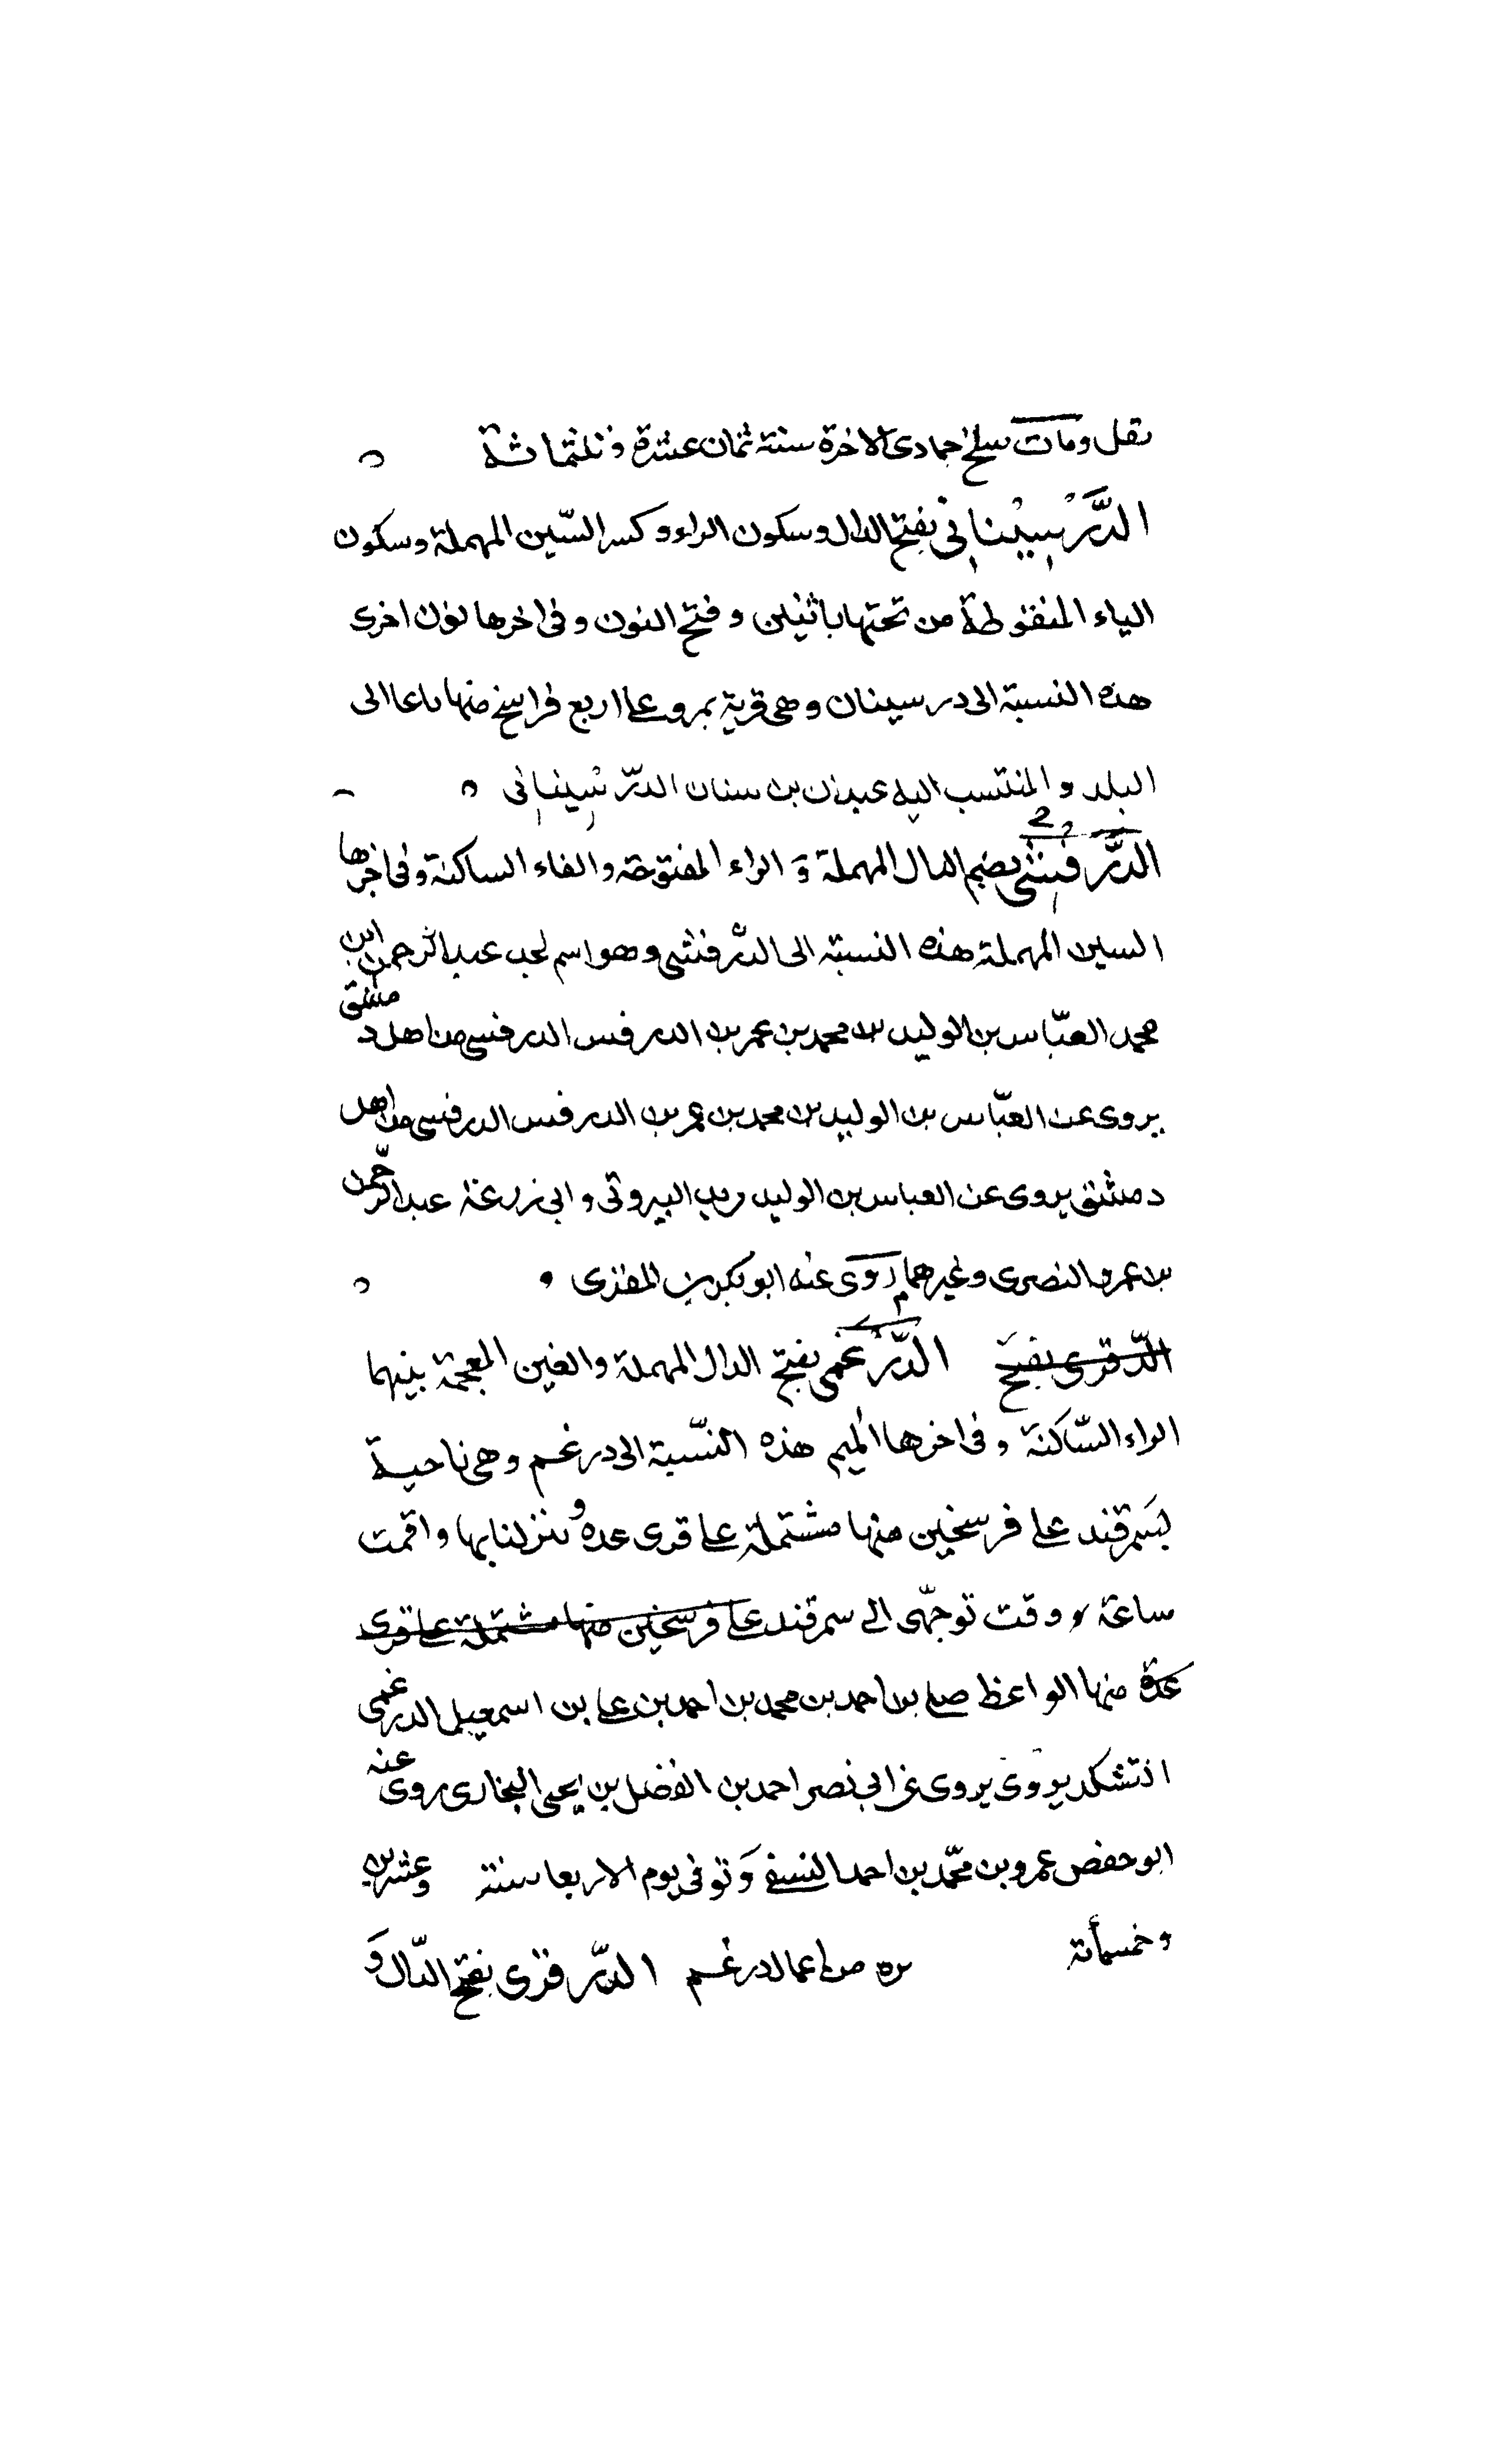 ثقل ومات سلخ جمادى الاخرة سنة ثمان عشرة وثلثمائة
الدَّرْسِيْنَانِي بفتح الدال وسكون الراء وكسر السّين المهملة وسكون
الياء المنقوطة من تحتها باثنين وفتح النون وفى اخرها نون اخرى
هذه النسبة الى درسينان وهى قرية بمرو على اربع فراسخ منها باعا الى
البلد والمنتسب اليه عبدان بن سنان الدرّسينانى
الدَّرَفْسى بضم الدال المهملة وَ الراء المفتوحة والفاء الساكنة وفى اخرها
السين المهملة هذه النسبة الى الدرفسى وهو اسم لجد عبد الرحمن ابن
محمد العبّاس بن الوليد بن محمد بن عمر بن الدرفس الدرفسى من اهل دمشق
يروى عن العبّاس بن الوليد بن محمد بن عمر بن الدرفس الدرفسى من اهل
دمشق يروى عن العباس بن الوليد مزيد البيروتى و ابى زرعة عبد الرحّمن
بن عمرو النصرى وغيرهما رَوَى عنه ابو بكر بن المقرى
الدّرقرى بفتح الدَّرْغمى بفتح الدال المهملة والغين المعجمة بينهما
الراء السّاكنة وفى اخرها الميم هذه النّسبة الى درغم وهى ناحية
بسَمرقند على فرسخين منها مشتملة على قرى عدة ونزلنا بها واقمت
ساعة وقت توجّهى الى سمرقند على فرسخين منها مشتملة على قرى
عدّة منها الواعظ صابر بن احمد بن محمد بن احمد بن على بن اسمعيل الدرغمى
يروى عن ابى نصر احمد بن الفضل بن يحيى البخارى روى عنه
ابو حفص عمرو بن محّمد بن احمد النسفى وَتوفى يوم الاربعا سنة وعشرين
وخمسمأئة من اعمال درغم الدرّقزى بفتح الدّال وَ